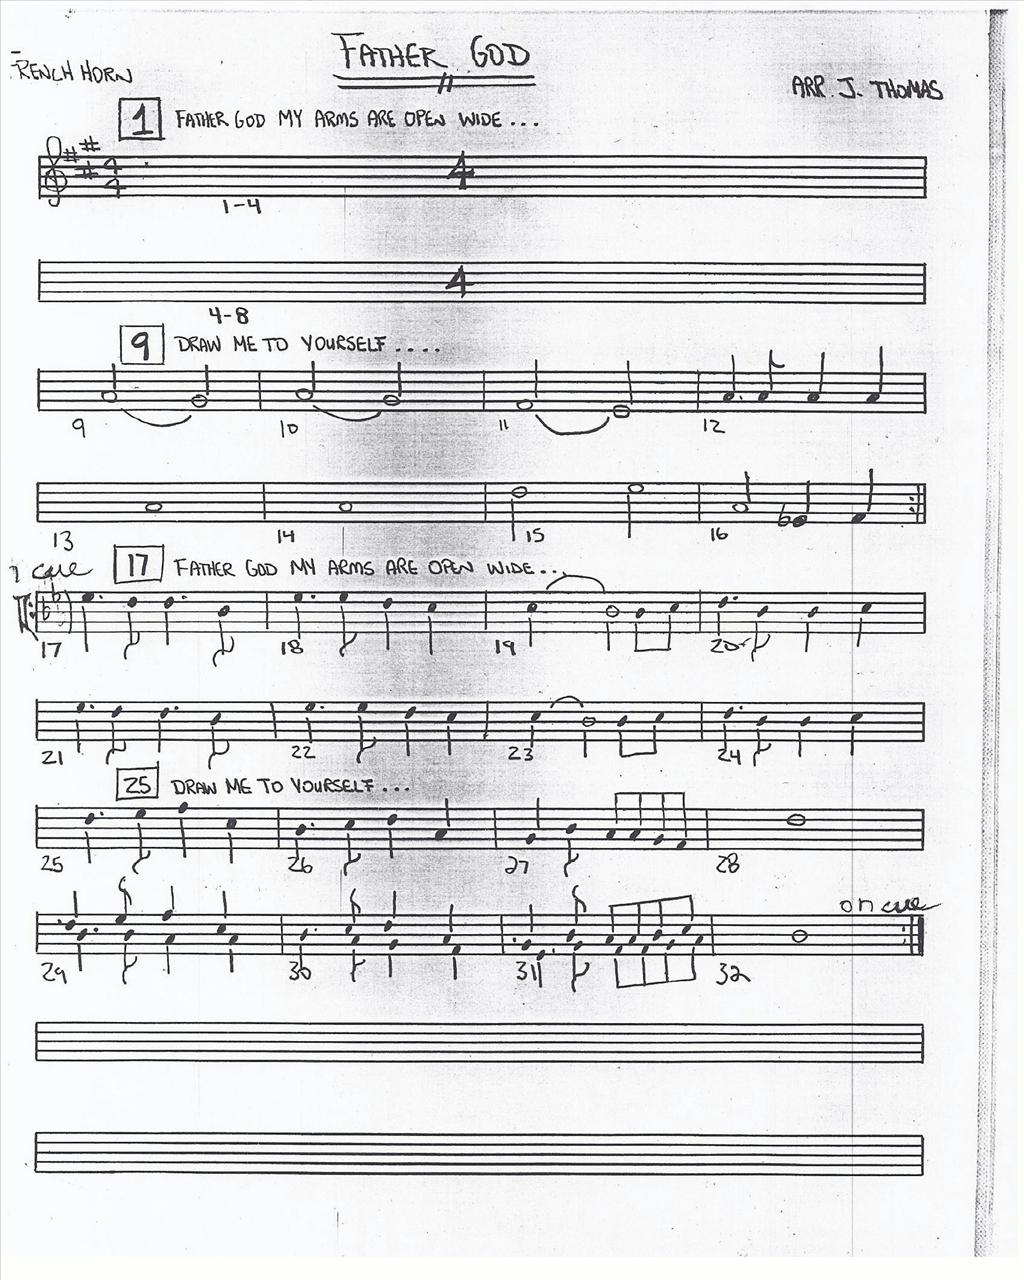 FATHER GOD
RENCH HORN
ARR. J. THOMAS
1 FATHER GOD MY ARMS ARE OPEN WIDE...
4
4
4
1-4
4
4-8
9 DRAW ME TO YOURSELF....
9 10 11 12
13 14 15 16
17 FATHER GOD MY ARMS ARE OPEN WIDE...
cue
17 18 19 20
21 22 23 24
25 DRAW ME TO YOURSELF...
25 26 27 28
on cue
29 30 31 32